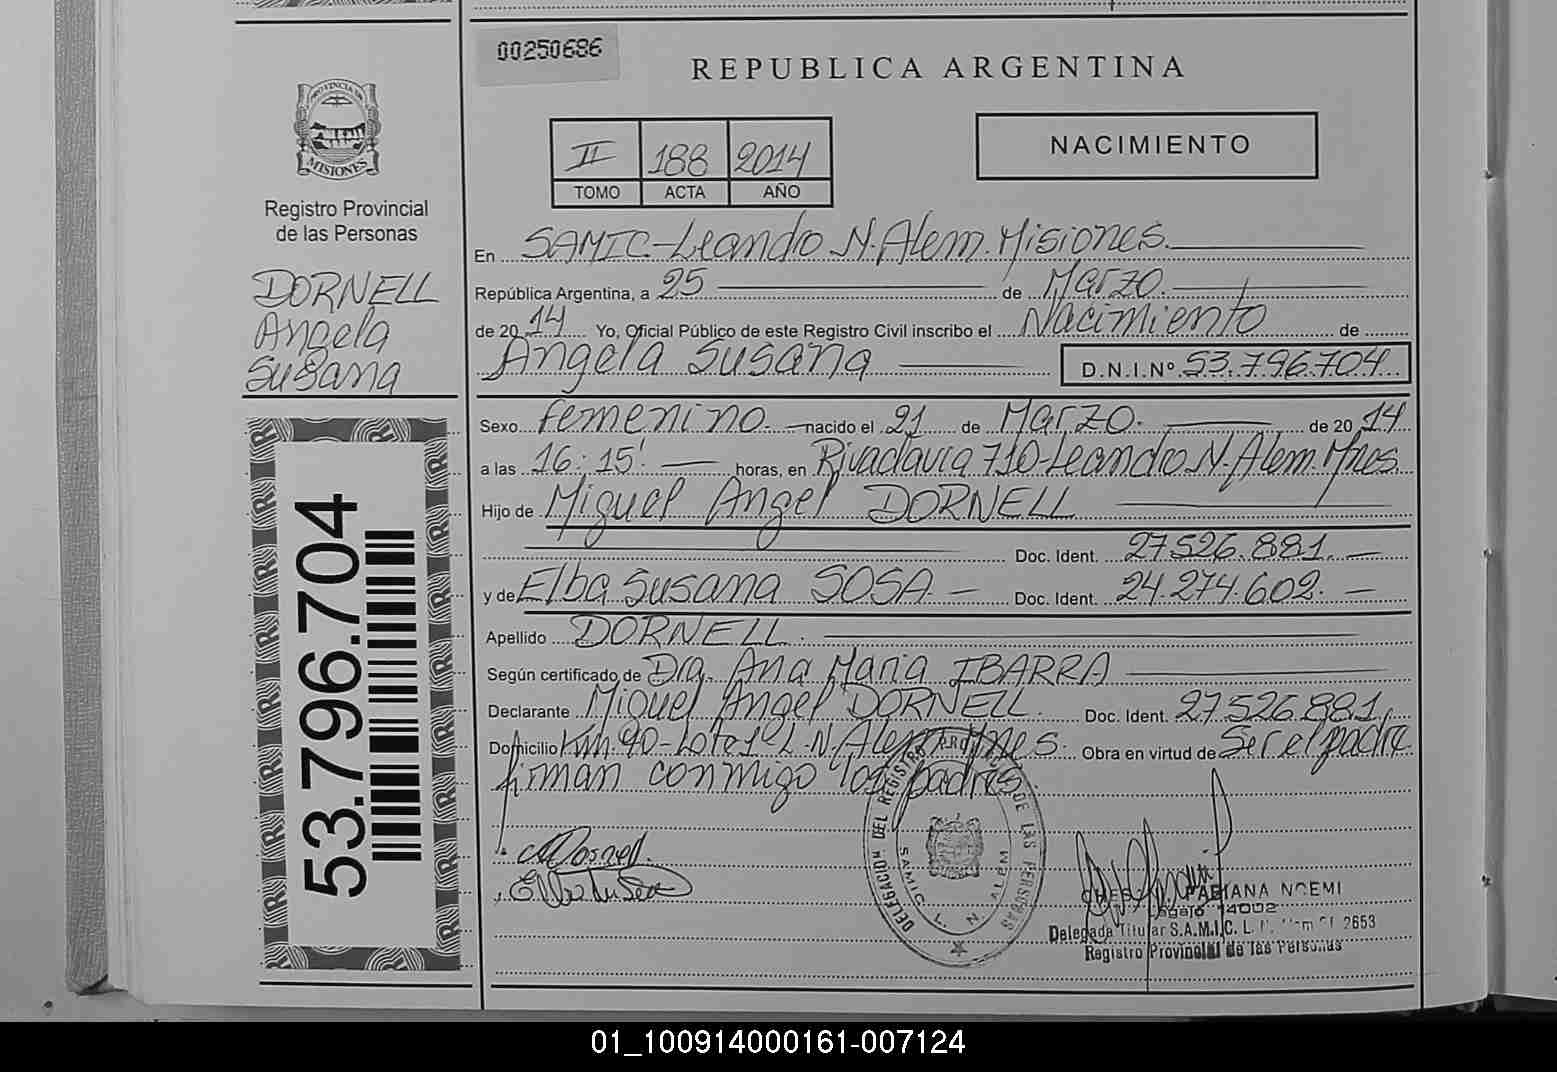 00250686
REPUBLICA ARGENTINA
PROVINCIA DE
MISIONES
Registro Provincial
de las Personas
DORNELL
Angela
Susana
II 188 2014
TOMO ACTA AÑO
NACIMIENTO
En SAMIC-Leandro N. Alem. Misiones.
República Argentina, a 25 de Marzo.
de 2014 Yo, Oficial Público de este Registro Civil inscribo el Nacimiento de
Angela Susana D.N.I.Nº 53.796.704
Sexo femenino. nacido el 21 de Marzo. de 2014
a las 16:15' horas, en Rivadavia 710-Leandro N. Alem. Mnes.
Hijo de Miguel Angel DORNELL
Doc. Ident. 27.526.881.
y de Elba Susana SOSA. Doc. Ident. 24.274.602.
Apellido DORNELL.
Según certificado de Dra. Ana Maria IBARRA
Declarante Miguel Angel DORNELL. Doc. Ident. 27.526.881.
Domicilio Km. 90-Lote 1º L. N. Alem. Mnes. Obra en virtud de Ser el padre
firman conmigo los padres.
53.796.704
DELEGACION DEL REGISTRO PROVINCIAL DE LAS PERSONAS
SAMIC L. N. ALEM
FABIANA NOEMI
Legajo 14002
Delegada Titular S.A.M.I.C. L. N. Alem Of. 2653
Registro Provincial de las Personas
01_100914000161-007124